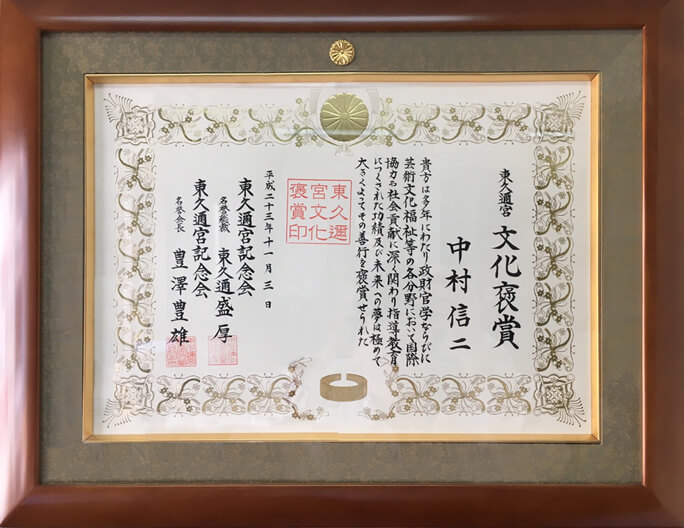 東久邇宮 文化褒賞
中村信二
貴方は多年にわたり政財官学ならびに
芸術文化福祉等の各分野において国際
協力や社会貢献に深く関わり指導教育
につくされた功績及び未来への夢は極めて
大きくよってその善行を褒賞せられた
東久邇
宮文化
褒賞印
平成二十三年十一月三日
東久邇宮記念会
名誉総裁 東久邇盛厚
東久邇宮記念会
名誉会長 豊澤豊雄